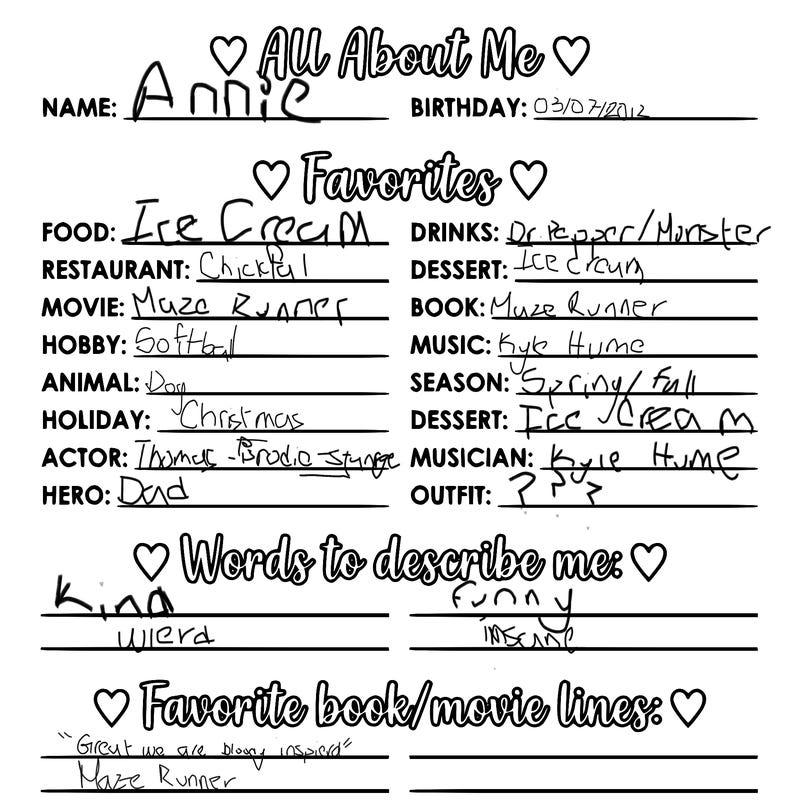 All About Me
NAME: Annie BIRTHDAY: 03/07/2012
Favorites
FOOD: Ice Cream DRINKS: Dr. Pepper/Monster
RESTAURANT: Chickful DESSERT: Ice Cream
MOVIE: Maze Runner BOOK: Maze Runner
HOBBY: Softball MUSIC: Kyle Hume
ANIMAL: Dog SEASON: Spring/Fall
HOLIDAY: Christmas DESSERT: Ice Cream
ACTOR: Thomas-Brodie-Sange MUSICIAN: Kyle Hume
HERO: Dad OUTFIT: ???
Words to describe me:
Kind Funny
Wierd insane
Favorite book/movie lines:
"Great we are bloody inspierd"
Maze Runner